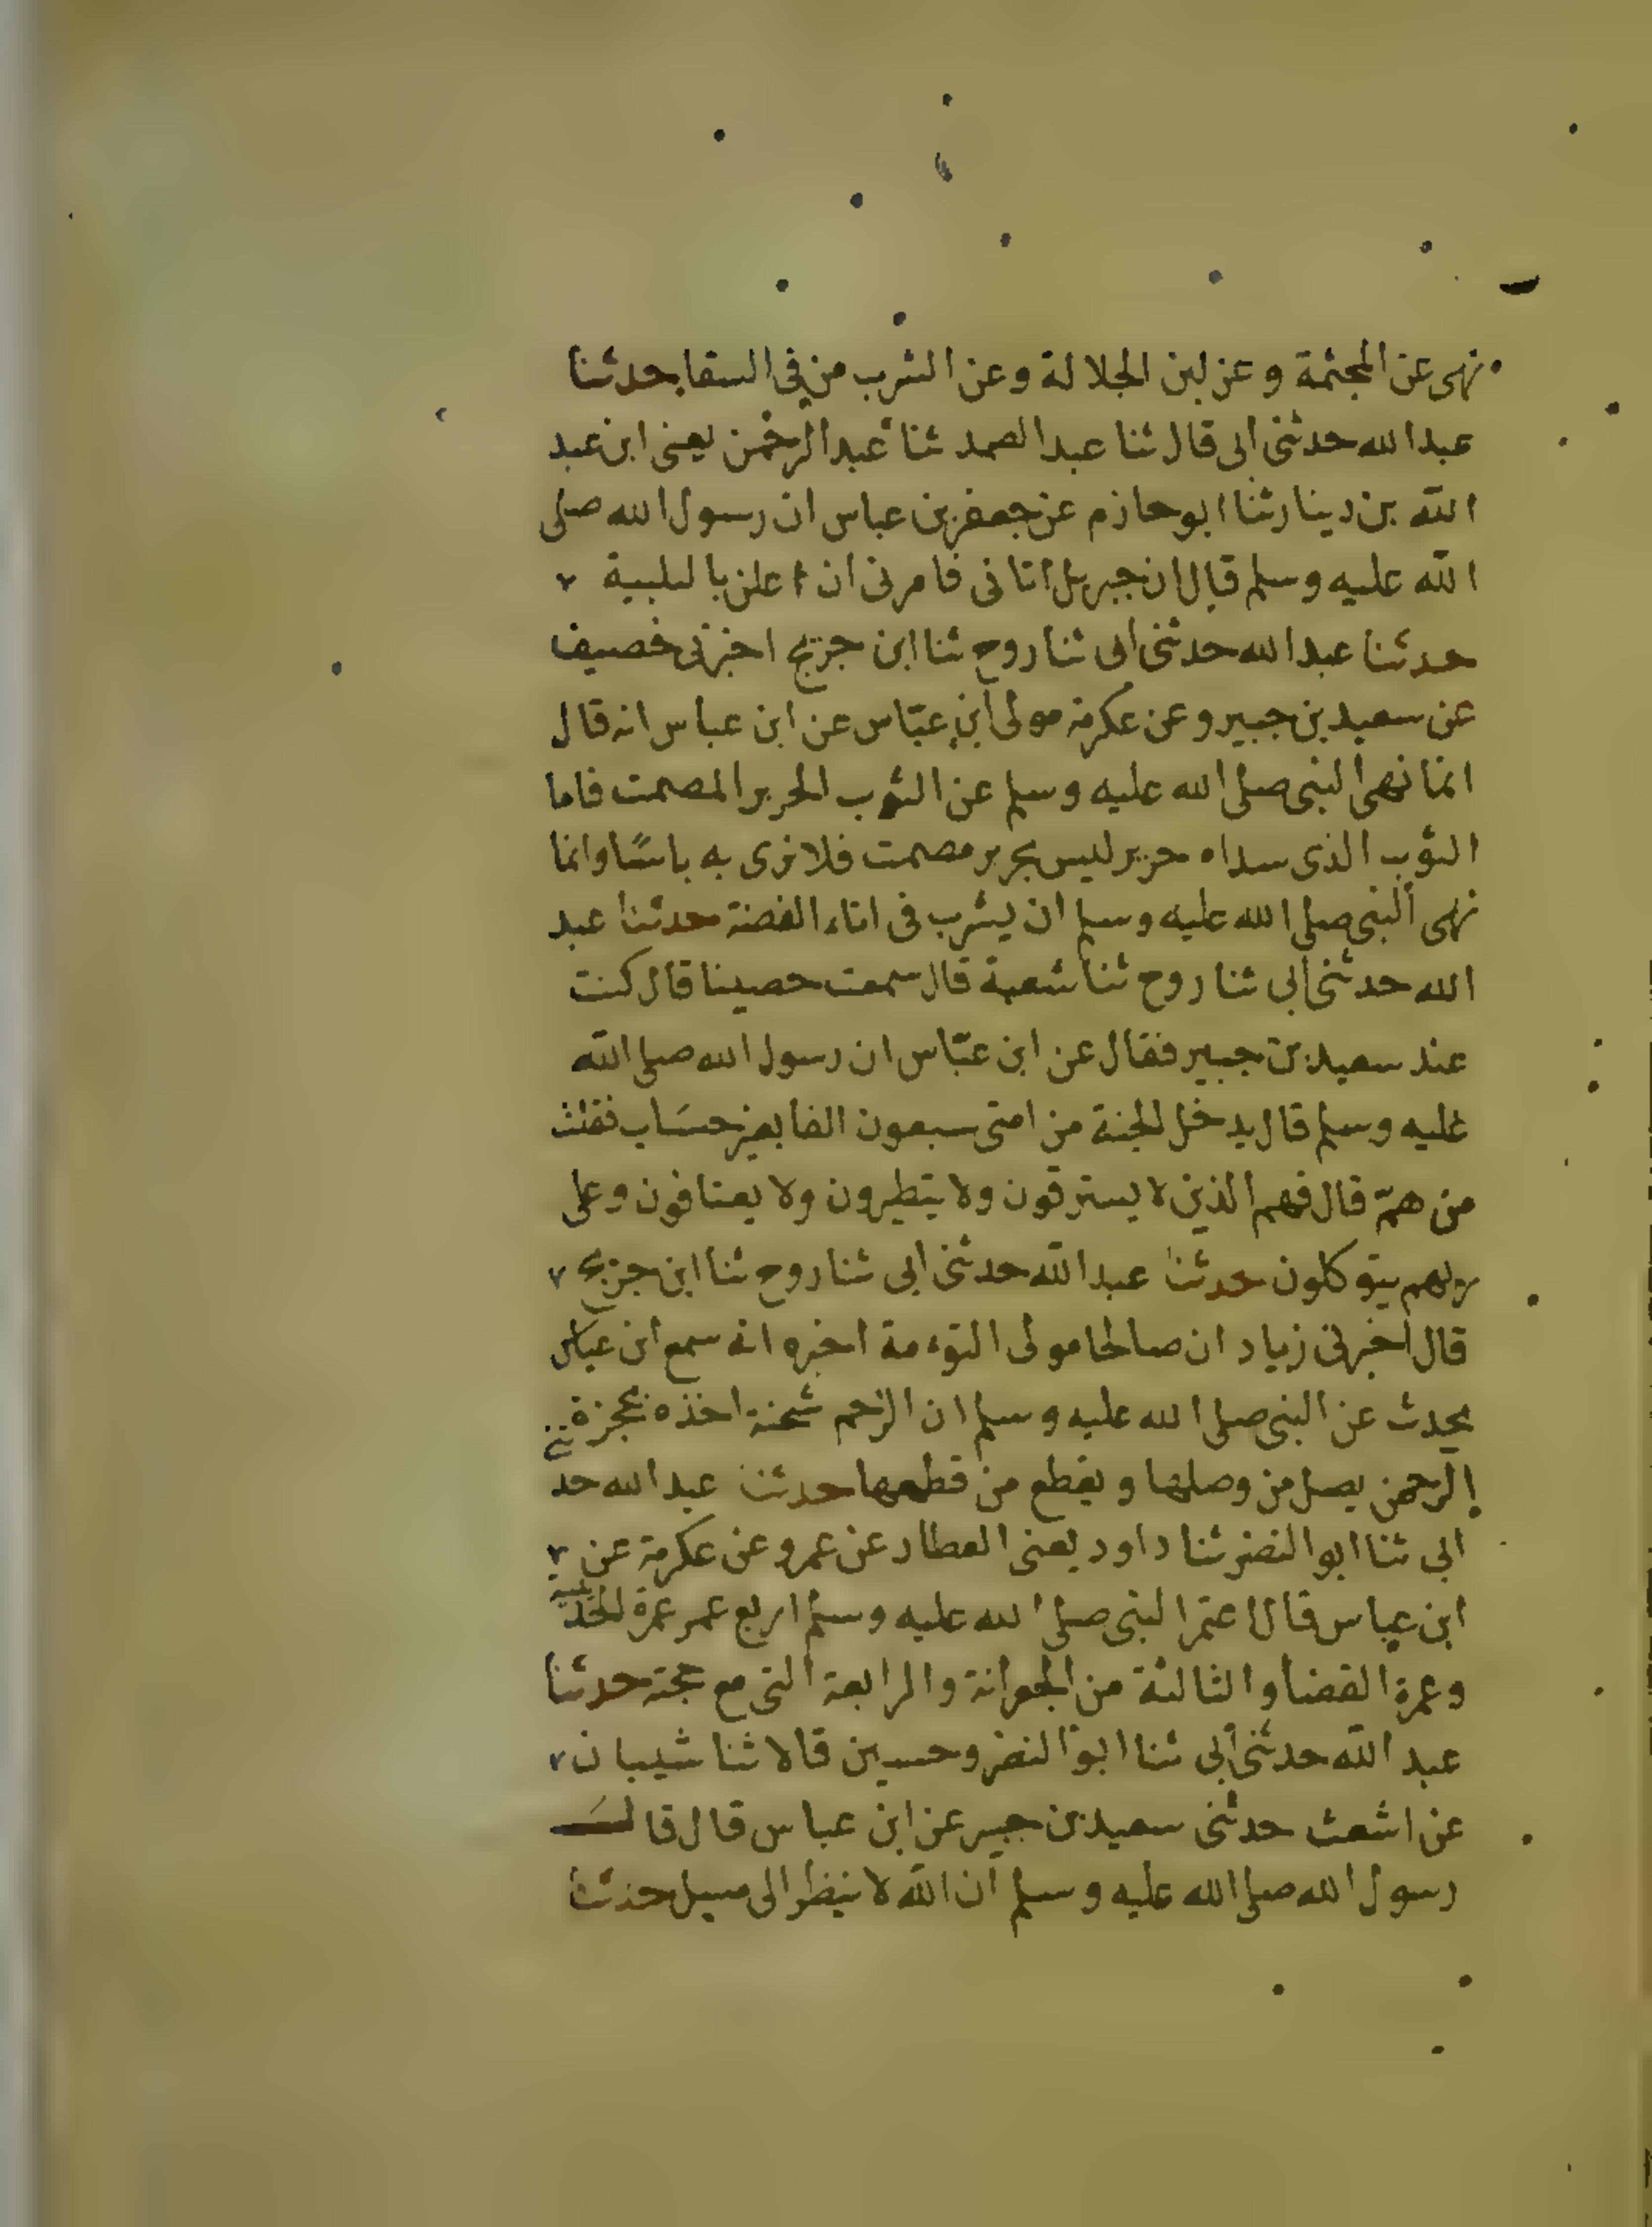 نهى عن المجثمة وعن لبن الجلالة وعن الشرب من في السقا حدثنا
عبد الله حدثنى ابى قال ثنا عبد الصمد ثنا عبد الرحمن يعنى ابن عبد
الله بن دينار ثنا ابو حازم عن جعفر بن عباس ان رسول الله صلى
الله عليه وسلم قال ان جبريل اتانى فامرنى ان اعلن بالتلبية
حدثنا عبد الله حدثنى ابى ثنا روح ثنا ابن جريج اخبرنى خصيف
عن سعيد بن جبير وعن عكرمة مولى ابن عباس عن ابن عباس انه قال
انما نهى النبى صلى الله عليه وسلم عن الثوب الحرير المصمت فاما
الثوب الذى سداه حرير ليس بحرير مصمت فلا نرى به باسًا وانما
نهى النبى صلى الله عليه وسلم ان يشرب فى اناء الفضة حدثنا عبد
الله حدثنى ابى ثنا روح ثنا شعبة قال سمعت حصينا قال كنت
عند سعيد بن جبير فقال عن ابن عبّاس ان رسول الله صلى الله
عليه وسلم قال يدخل الجنة من امتى سبعون الفا بغير حسَاب فقلت
من همّ قال فهم الذين لا يسترقون ولا يتطيرون ولا يعتافون وعلى
ربهم يتوكلون حدثنا عبد الله حدثنى ابى ثنا روح ثنا ابن جريج
قال اخبرنى زياد ان صالحا مولى التوءمة اخبره انه سمع ابن عباس
يحدث عن النبى صلى الله عليه وسلم ان الرحم شجنة اخذه بحجزة
الرحمن يصل من وصلها ويقطع من قطعها حدثنا عبد الله حدثنى
ابى ثنا ابو النضر ثنا داود يعنى العطار عن عمرو عن عكرمة عن
ابن عباس قال اعتمر النبى صلى الله عليه وسلم اربع عمر عمرة الحديبية
وعمرة القضا والثالثة من الجعرانة والرابعة التى مع حجته حدثنا
عبد الله حدثنى ابى ثنا ابو النضر وحسين قالا ثنا شيبان
عن اشعث حدثنى سعيد بن جبير عن ابن عباس قال قال
رسول الله صلى الله عليه وسلم ان الله لا ينظر الى مسبل حدثنا